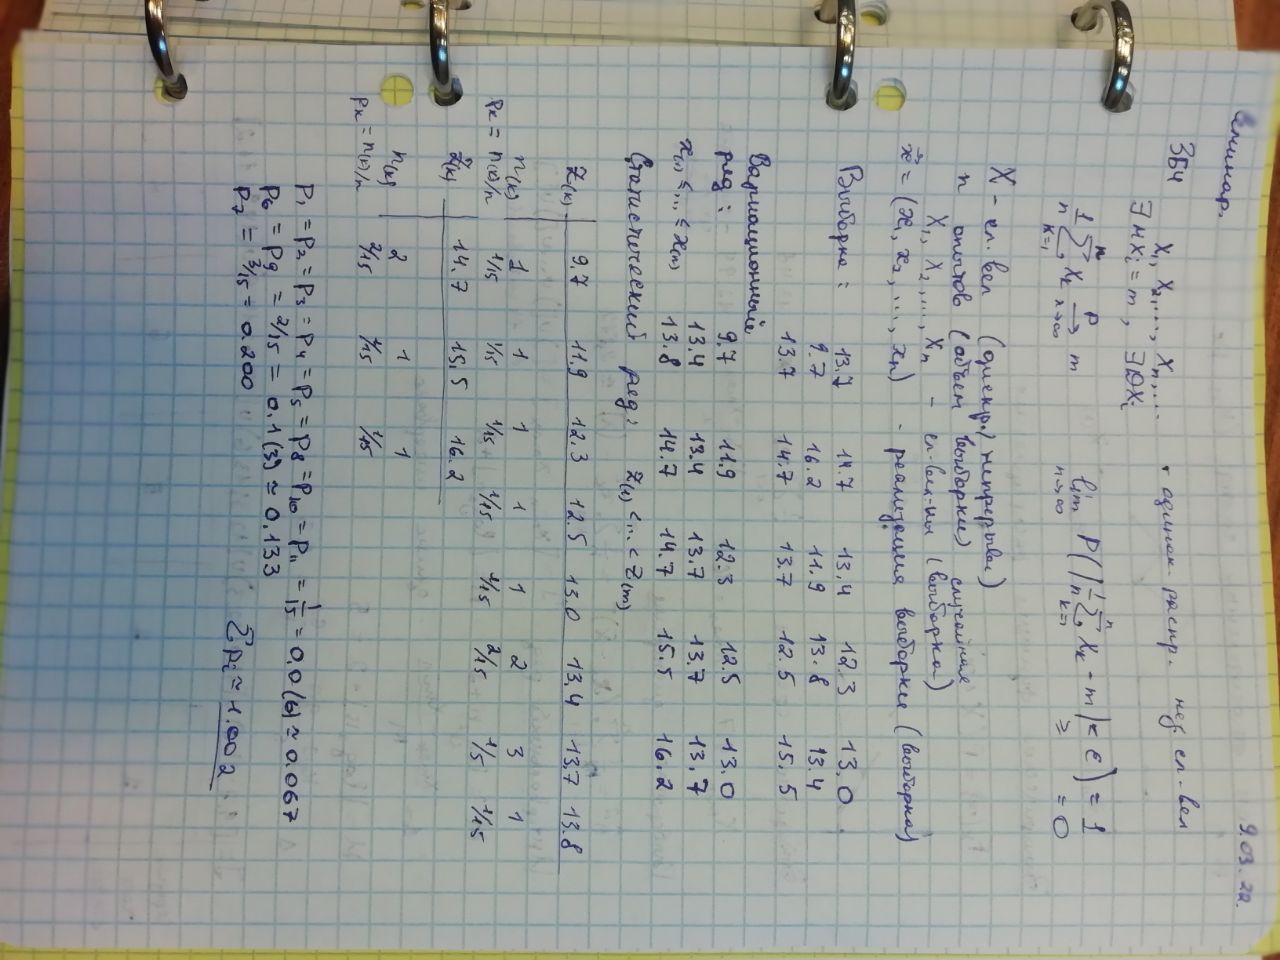 Семинар. 9.03.22.
ЗБЧ X₁, X₂, ..., Xₙ, ... - одинак. распр. нез. сл. вел
∃ MXᵢ = m, ∃ DXᵢ
1/n ∑ₖ₌₁ⁿ Xₖ →ᴾ (n→∞) m lim n→∞ P(|1/n ∑ₖ₌₁ⁿ Xₖ - m| < ε) = 1
≥ = 0
X - сл. вел (дискр./непрерывн)
n опытов (объем выборки) случайная
X₁, X₂, ..., Xₙ - сл-вел-ны (выборка)
x⃗ = (x₁, x₂, ..., xₙ) - реализация выборки (выборка)
Выборка: 13.7 14.7 13.4 12.3 13.0
9.7 16.2 11.9 13.8 13.4
13.7 14.7 13.7 12.5 15.5
Вариационный
ряд: 9.7 11.9 12.3 12.5 13.0
13.4 13.4 13.7 13.7 13.7
x₍₁₎ ≤ ... ≤ x₍ₙ₎ 13.8 14.7 14.7 15.5 16.2
Статистический ряд: Z₍₁₎ < ... < Z₍ₘ₎
Z₍ₖ₎ 9.7 11.9 12.3 12.5 13.0 13.4 13.7 13.8
n₍ₖ₎ 1 1 1 1 1 2 3 1
pₖ = n₍ₖ₎/n 1/15 1/15 1/15 1/15 1/15 2/15 1/5 1/15
Z₍ₖ₎ 14.7 15.5 16.2
n₍ₖ₎ 2 1 1
pₖ = n₍ₖ₎/n 2/15 1/15 1/15
p₁ = p₂ = p₃ = p₄ = p₅ = p₈ = p₁₀ = p₁₁ = 1/15 = 0.0(6) ≃ 0.067
p₆ = p₉ = 2/15 = 0.1(3) ≃ 0.133
p₇ = 3/15 = 0.200 ∑pᵢ ≃ 1.002